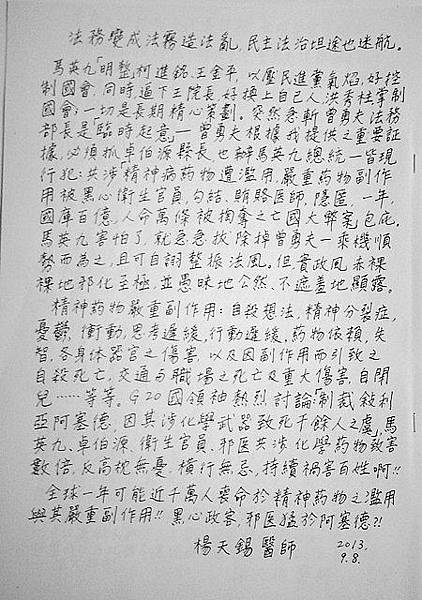 法務變成法霧造法亂，民主法治坦途也迷航。
馬英九「明整」柯進銘、王金平，以壓民進黨氣焰，好控
制國會，同時逼下王院長好換上自己人洪秀柱掌制
國會；一切是長期精心策劃。突然急斬曾勇夫法務
部長是「臨時起意」—曾勇夫根據我提供之重要証
據，必須抓卓伯源縣長也辦馬英九總統一皆現
行犯：共涉「精神病药物遭濫用，嚴重药物副作
用被黑心衛生官員，勾結、賄賂医師，隱匿，一年，
國庫百億，人命萬條被掏奪之亡國大弊案」包庇。
馬英九害怕了，就急急拔除掉曾勇夫一乘機順
勢而為之，且可自詡整振法風。但實政風赤裸
裸地邪化至極，並愚昧地公然、不遮羞地顯露。
精神药物嚴重副作用：自殺想法，精神分裂症，
憂鬱，衝動，思考遲緩，行動遲緩，药物依賴，失
智，各身体器官之傷害，以及因副作用而引致之
自殺死亡，交通与職場之死亡及重大傷害，自閉
兒……等等。G20國領袖熱烈討論「制裁敘利
亞阿塞德，因其涉化學武器致死千餘人之處，馬
英九、卓伯源、衛生官員、邪医共涉化學药物致害
數倍，反高枕無憂，橫行無忌，持續禍害百姓啊!!
全球一年可能近千萬人喪命於精神药物之濫用
與其嚴重副作用!! 黑心政客，邪医猛於阿塞德?!
楊天錫醫師 2013.
9.8.